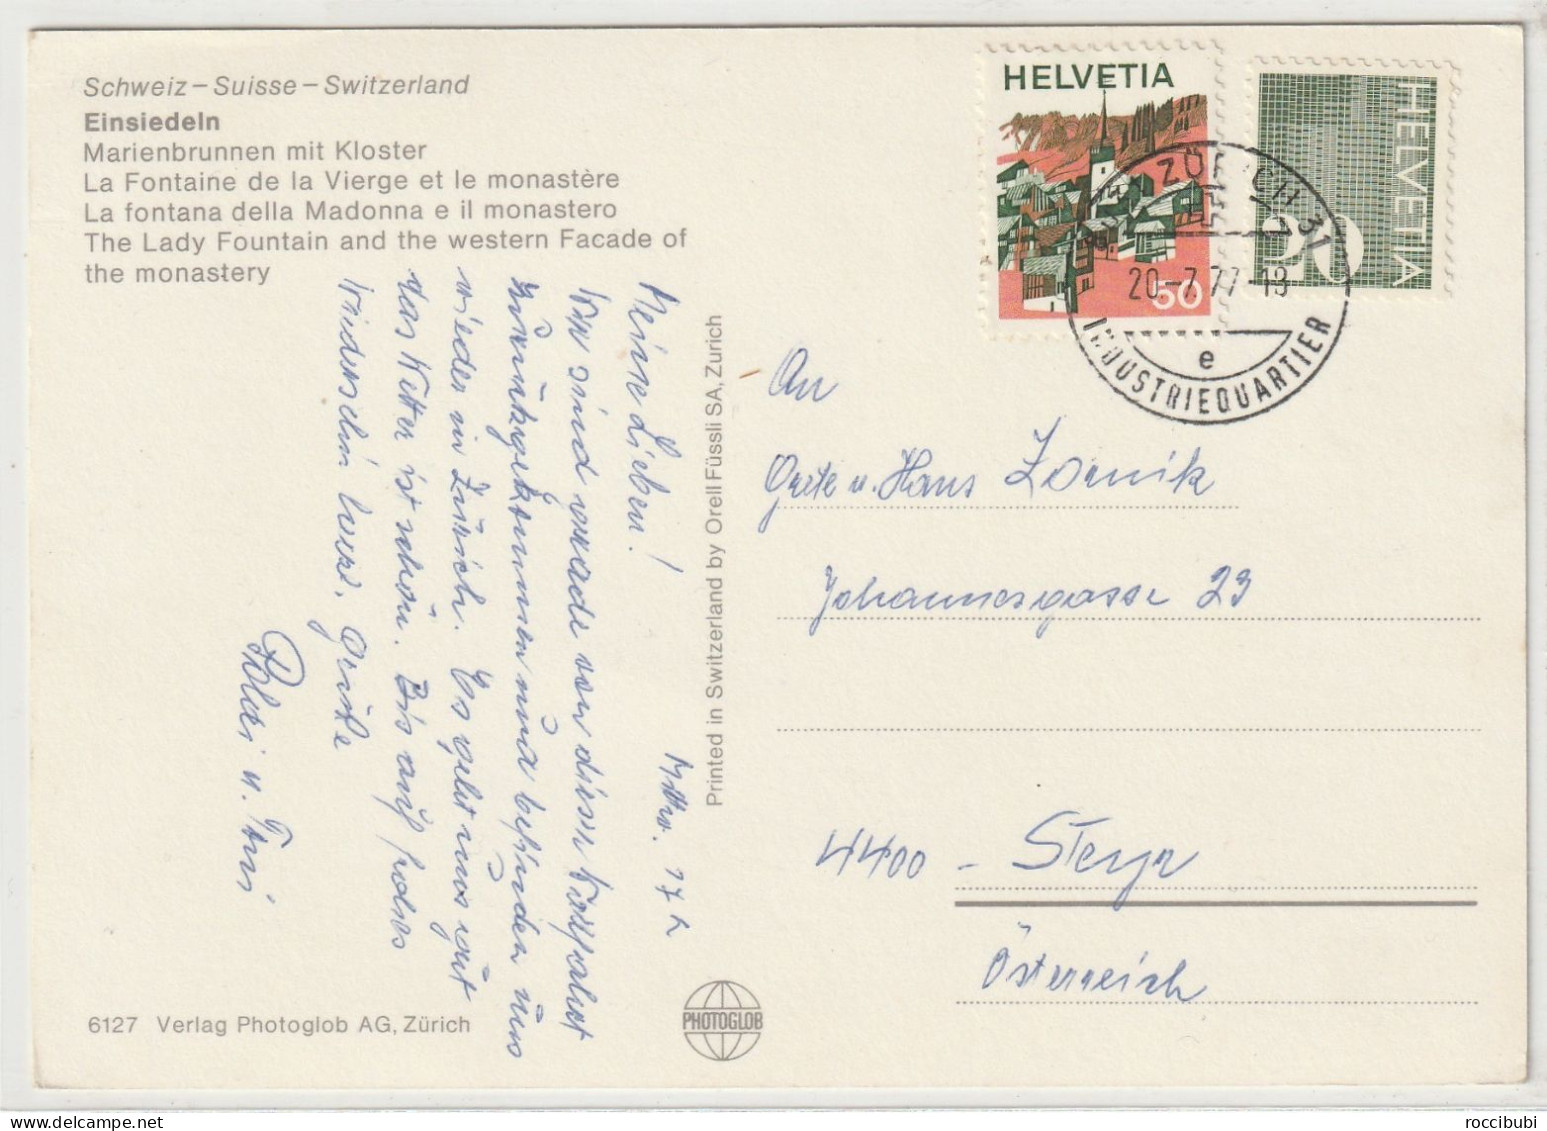 Schweiz – Suisse – Switzerland
Einsiedeln
Marienbrunnen mit Kloster
La Fontaine de la Vierge et le monastère
La fontana della Madonna e il monastero
The Lady Fountain and the western Facade of
the monastery
Mittw. 17 h
Meine Lieben!
Wir sind grade von dieser Wallfahrt
zurückgekommen und befinden uns
wieder in Zürich. Es geht uns gut
das Wetter ist schön. Bis auf frohes
Wiedersehn herzl. Grüße
Poldi u. Toni
6127 Verlag Photoglob AG, Zürich
PHOTOGLOB
Printed in Switzerland by Orell Füssli SA, Zurich
HELVETIA
50
HELVETIA
ZÜRICH 31
20.-7.77-18
e
INDUSTRIEQUARTIER
An
Grete u. Hans Zornik
Johannesgasse 23
4400 - Steyr
Österreich
roccibubi